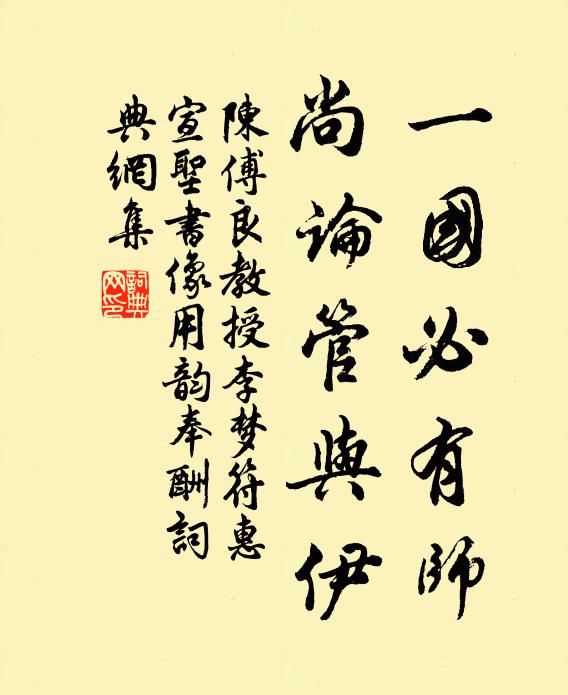 一國必有師
尚論管與伊
陳傅良教授李梦符惠
宣聖書像用韵奉酬詞
典網集
詞典网印